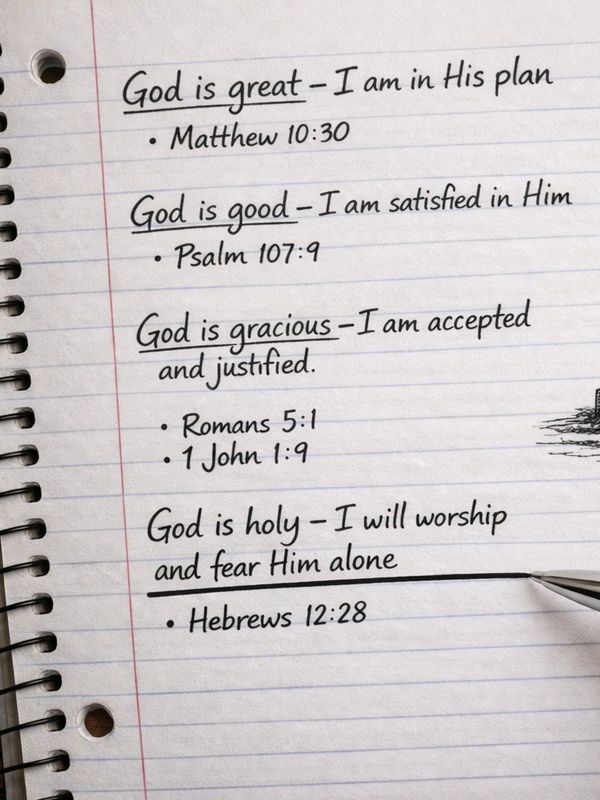 God is great – I am in His plan
• Matthew 10:30
God is good – I am satisfied in Him
• Psalm 107:9
God is gracious – I am accepted
and justified.
• Romans 5:1
• 1 John 1:9
God is holy – I will worship
and fear Him alone
• Hebrews 12:28